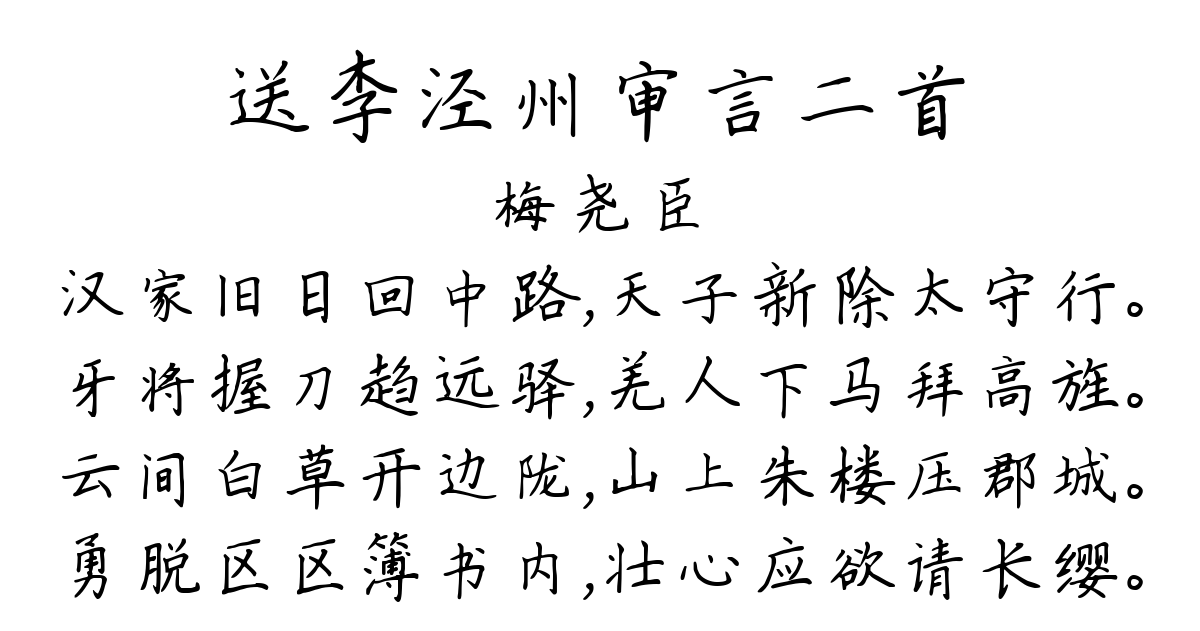 送李泾州审言二首
梅尧臣
汉家旧日回中路,天子新除太守行。
牙将握刀趋远驿,羌人下马拜高旌。
云间白草开边陇,山上朱楼压郡城。
勇脱区区簿书内,壮心应欲请长缨。